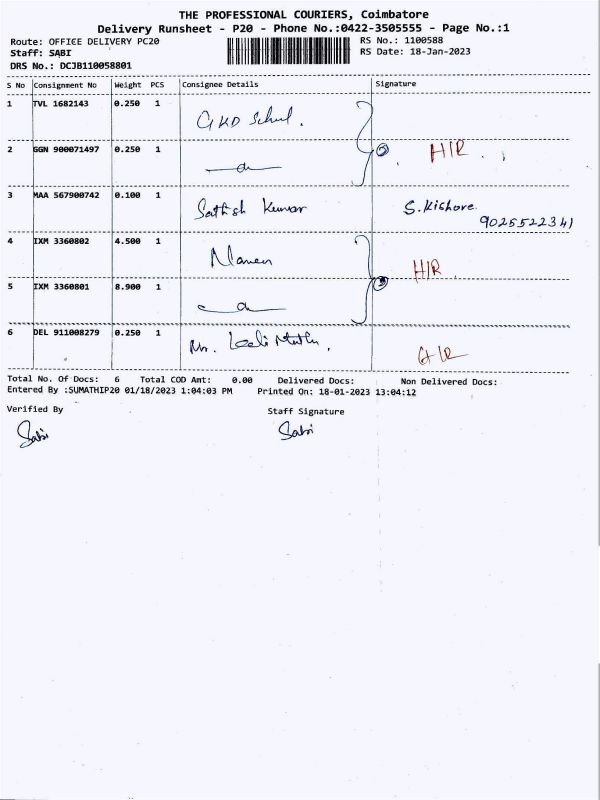 THE PROFESSIONAL COURIERS, Coimbatore
Delivery Runsheet - P20 - Phone No.:0422-3505555 - Page No.:1
Route: OFFICE DELIVERY PC20 RS No.: 1100588
Staff: SABI RS Date: 18-Jan-2023
DRS No.: DCJB110058801
S No Consignment No Weight PCS Consignee Details Signature
1 TVL 1682143 0.250 1 GKD School.
2 GGN 900071497 0.250 1 — do — 2 H/R
3 MAA 567900742 0.100 1 Sathish Kumar S.Kishore
9025522341
4 IXM 3360802 4.500 1 H/R
5 IXM 3360801 8.900 1 — do —
6 DEL 911008279 0.250 1 Mr.
Total No. Of Docs: 6 Total COD Amt: 0.00 Delivered Docs: Non Delivered Docs:
Entered By :SUMATHIP20 01/18/2023 1:04:03 PM Printed On: 18-01-2023 13:04:12
Verified By Staff Signature
Sabi Sabi